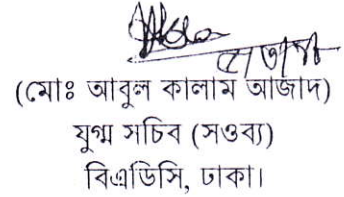 (মোঃ আবুল কালাম আজাদ)
যুগ্ম সচিব (সওব্য)
বিএডিসি, ঢাকা।